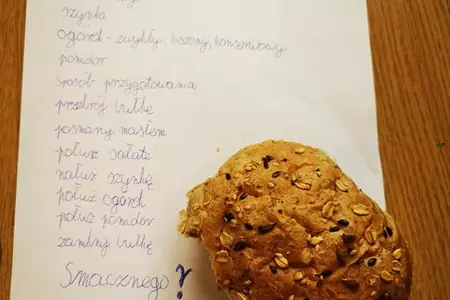 szynka
ogórek - zwykły, kiszony, konserwowy
pomidor
sposób przygotowania
przekrój bułkę
posmaruj masłem
połusz sałatę
nałusz szynkę
połusz ogórek
połusz pomidor
zamknij bułkę
Smacznego!